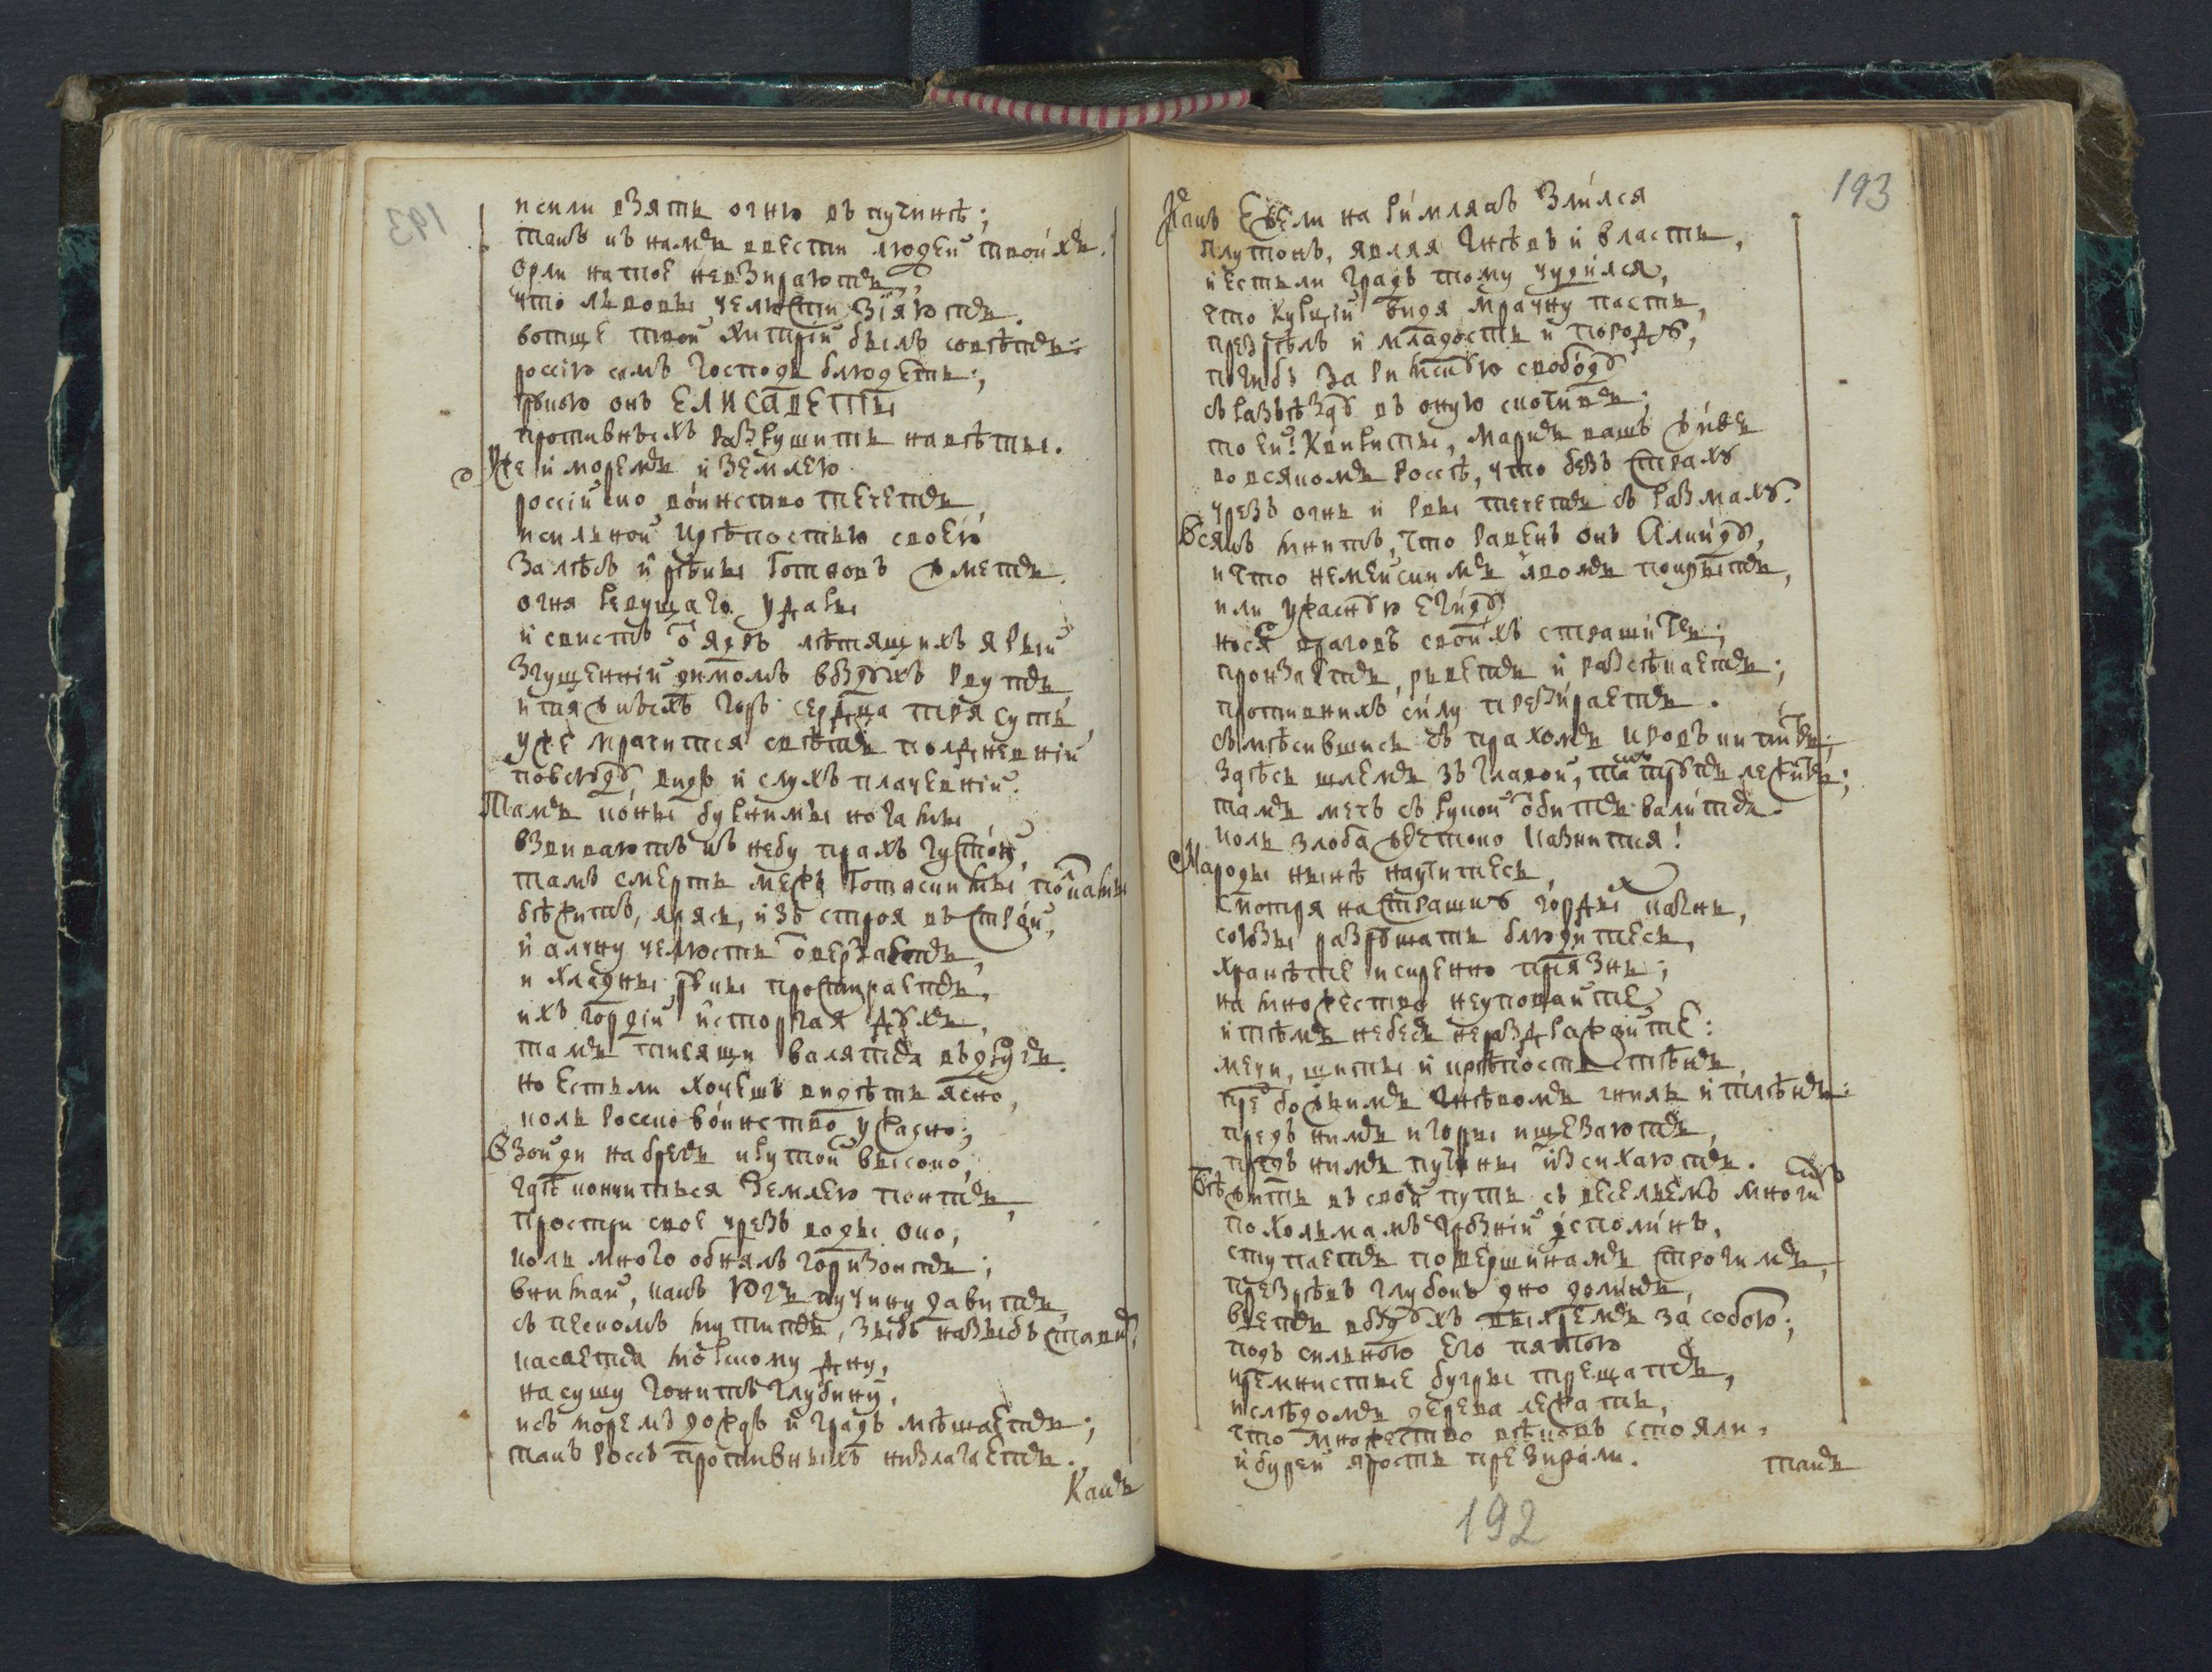 и сили взять огню въ пучинѣ;
такъ къ намъ ввести людей твоихъ.
орли на тое невзираютъ,
что львовы челюсти зїяютъ.
вотще твой хитрїй былъ совѣтъ:
россїю самъ Господь блюдетъ;
рѹкою онъ ЕЛИСАВЕТЫ
противныхъ разрушитъ навѣты.
Уже и моремъ и землею
россійско воинство течетъ,
и сильной крѣпостью своею
за лѣсъ и рѣки Готѳовъ жметъ.
огня ревущаго удары
и свистъ ѿ ядръ лѣтящихъ ярый
згущенній димомъ воздѹхъ рвутъ
и тяжкихъ горъ сердца трясутъ,
уже мрачится свѣтъ полдневнїй
повсюдѹ видъ и слухъ плачевнїй.
Тамъ кони бурними ногами
взвиваютъ къ небу прахъ густой,
тамъ смерть межъ Готѳскими полками
бѣжитъ, ярясь, изъ строя въ строй,
и алчну челюсть ѿверзаетъ,
и хладны рѹки простираетъ,
ихъ гордїй исторгая дѹхъ,
тамъ тисящи валятся вдругъ.
но естьли хочешъ видѣть ясно,
коль Росско воинство ужасно;
Взойди на брегъ крутой высоко,
гдѣ кончиться землею понтъ,
простри свое чрезъ воды око,
коль много обнялъ горизонтъ;
внимай, какъ Югъ пучину давитъ,
съ пескомъ мутитъ, зыбь на зыбь ставитъ
касается морскому дну,
на сушу гонитъ глубину,
и съ моремъ дождь и градъ мѣшаетъ;
такъ Россъ противныхъ низлагаетъ.
Какъ
193
Какъ Ежели на Римлянъ злился
Плутонъ, являя гнѣвъ и власть,
и естьли градъ тому чудился,
что Курцїй видя мрачну пасть,
презрѣлъ и младость и породѹ,
погибъ за Римскѹю свободѹ
съ разъѣздѹ въ оную скочивъ;
то ей! Квириты, Маркъ вашъ живъ
во всякомъ Россѣ, что безъ страхѹ
чрезъ огнь и рвы течетъ съ размахѹ.
Всякъ мнитъ, что равенъ онъ Алкидѹ,
и что немейскимъ львомъ покрытъ,
или ужаснѹю егидѹ
нося враговъ своихъ страшитъ;
пронзаетъ, рветъ и разсѣкаетъ;
противнихъ силу презираетъ.
смѣсившись съ прахомъ кровъ кипитъ;
здѣсь шлемъ зъ главой, тамъ трѹпъ лежитъ;
тамъ мечъ съ рукой ѿбитъ валится.
коль злоба жестоко казнится!
Народы нынѣ научитесь,
смотря на страшнѹ гордых казнь,
союзы разрѹшать блюдитесь,
хранѣте искренно прїязнь;
на множество неуповайте
и тѣмъ небесъ нераздражайте:
мечи, щиты и крѣпость стѣнъ
предъ божьимъ гнѣвомъ гниль и тлѣнъ:
предъ нимъ и горы ищезаютъ,
предъ нимъ пучины изсихаютъ.
Бѣжитъ въ свой путь съ весельемъ многимъ
по холъмамъ грѹзнїй исполинъ,
ступаетъ по вершинамъ строгимъ,
презрѣвъ глубоко дно долинъ,
вьетъ воздѹхъ выхремъ за собою;
подъ сильною его пятою
кремнистые бугры трещатъ,
и слѣдомъ дерева лежатъ,
что множество вѣковъ стояли,
и бурей ярость презирали.
такъ
192